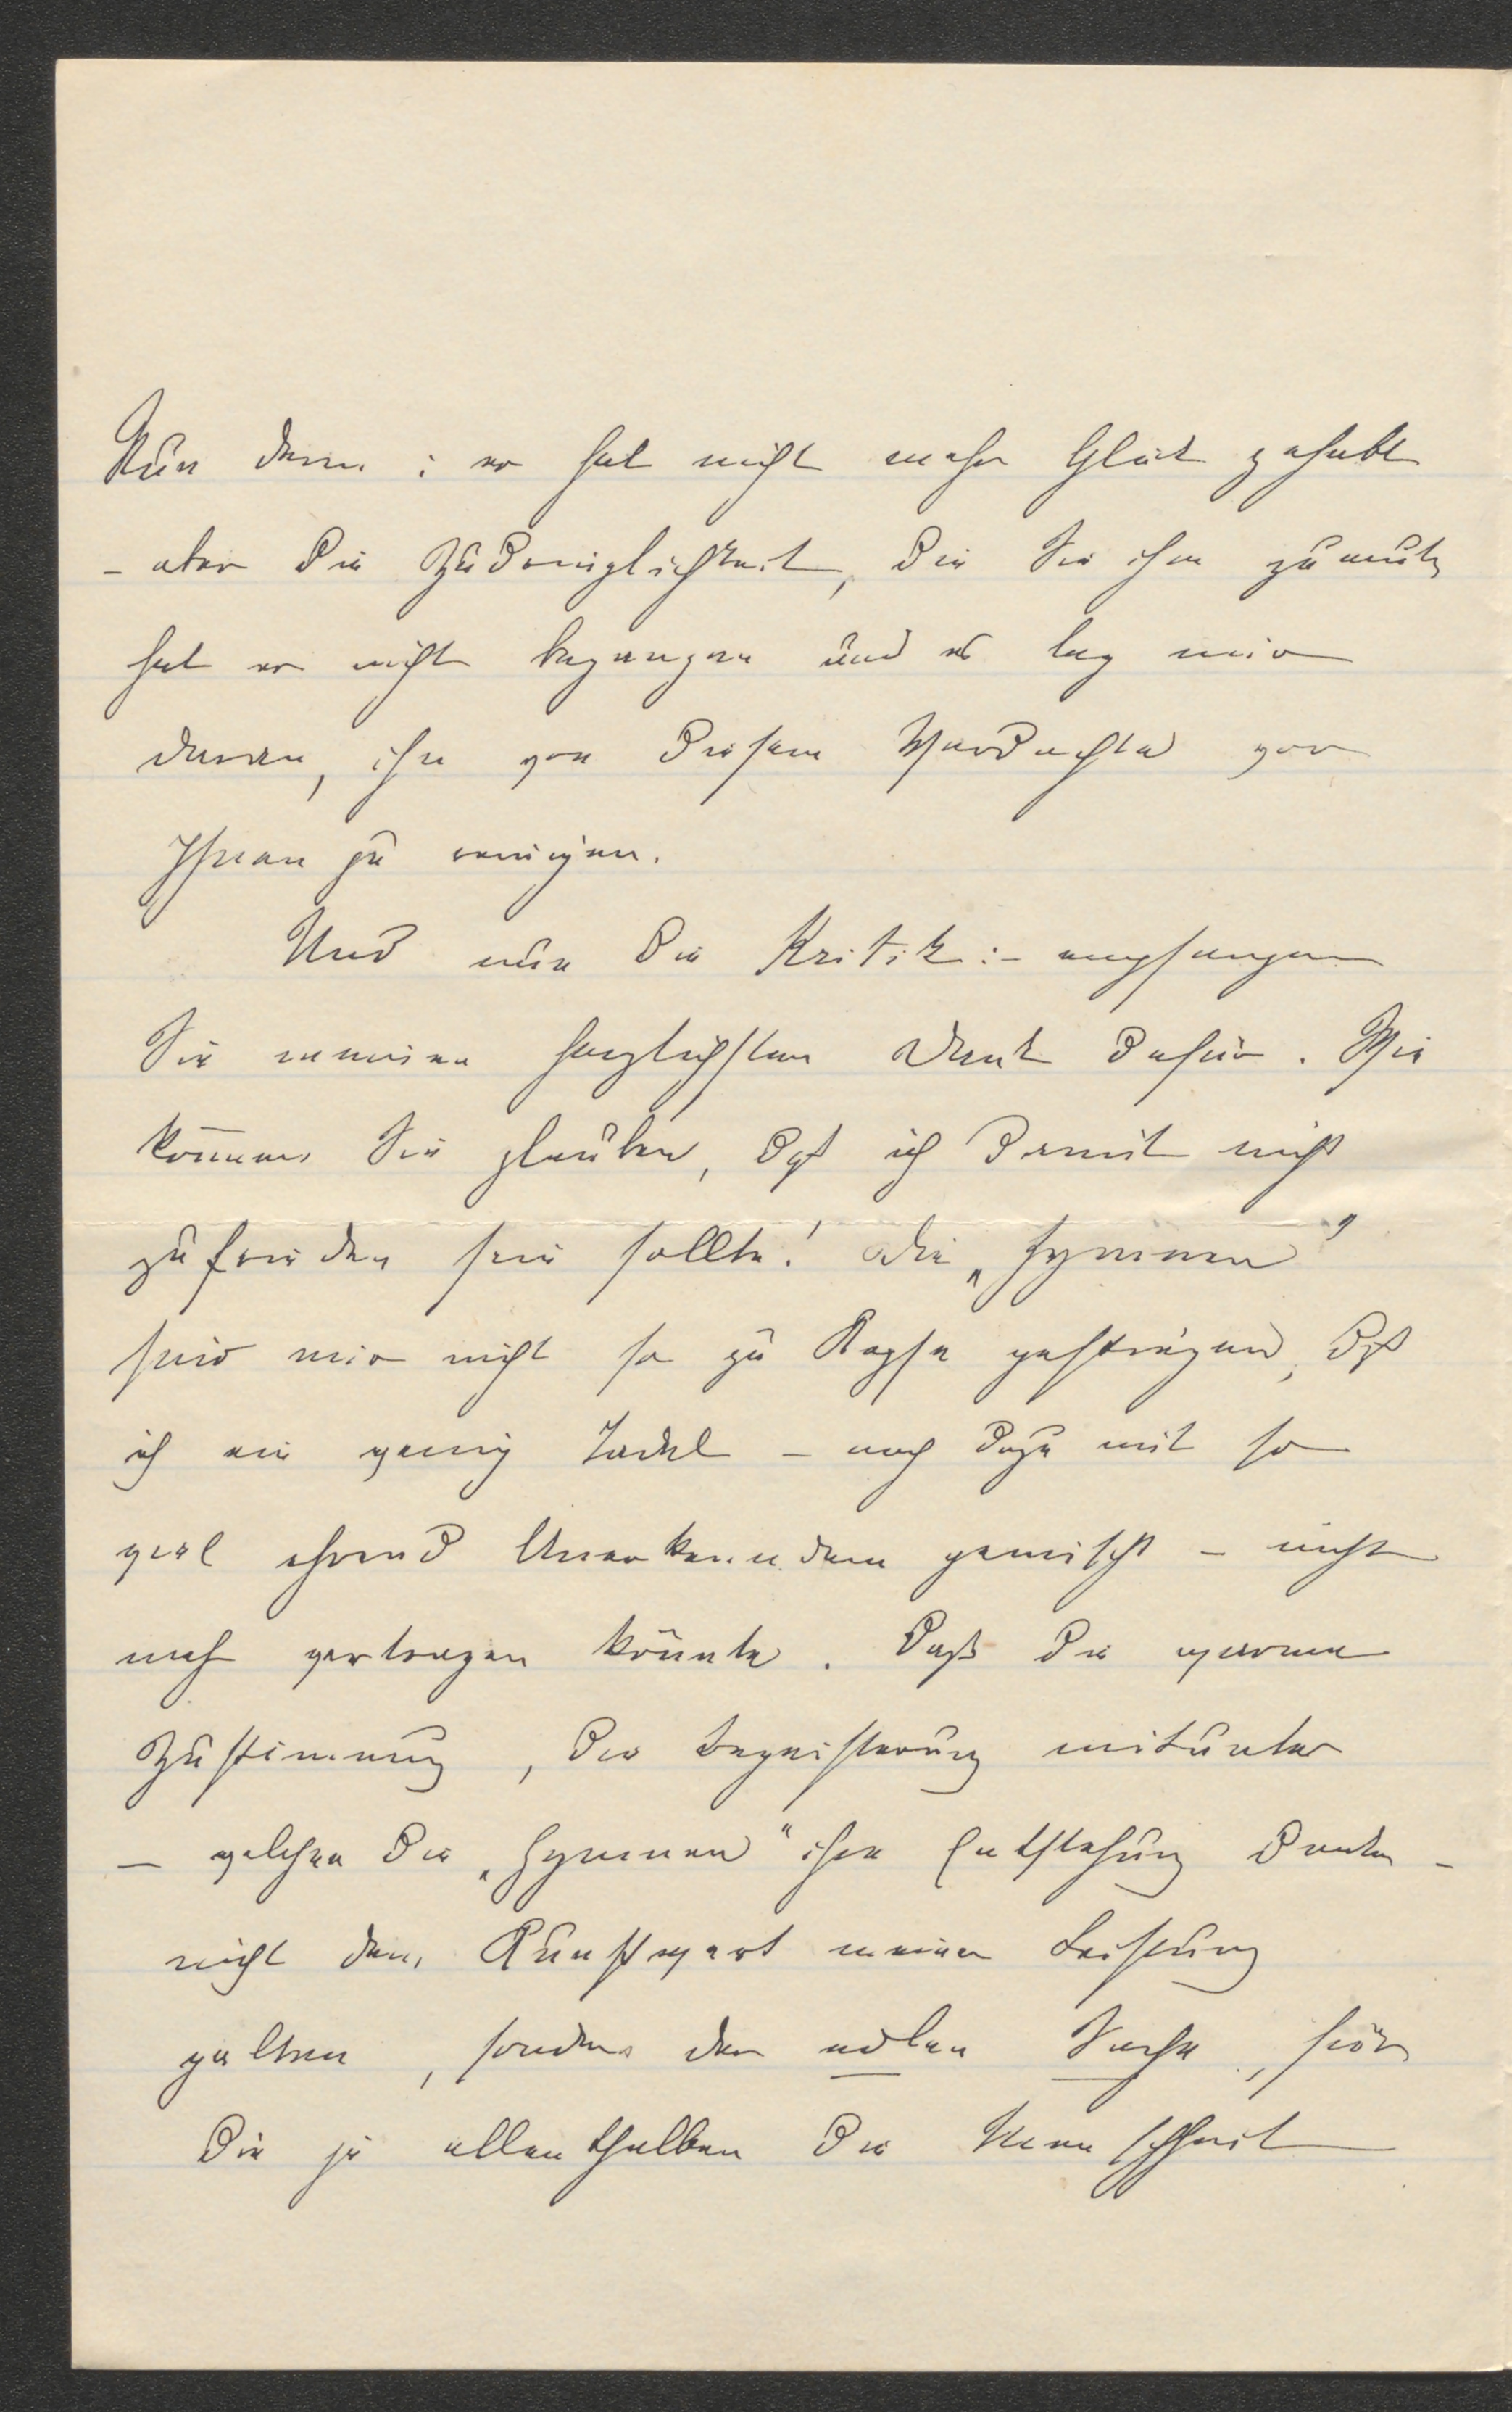 Nun denn: er hat nicht mehr Glück gehabt
- aber die Zudringlichkeit, die Sie ihm zumuth
hat er nicht begangen und es lag mir
daran, ihn von diesem Verdachte vor
Ihnen zu reinigen.
Und nun die Kritik: - empfangen
Sie meinen herzlichsten Dank dafür. Wie
können Sie glauben, daß ich damit nicht
zufrieden sein sollte! Die „Hymnen"
sind mir nicht so zu Kopfe gestiegen, daß
ich ein wenig Tadel - noch dazu mit so
viel ehrend Anerkennendem gemischt - nicht
mehr vertragen könnte. Daß die warme
Zustimmung, die Begeisterung mitunter
- welchen die „Hymnen" ihre Entstehung danken -
nicht dem Kunstwert meiner Leistung
galten, sondern der edlen Sache, für
die ja allenthalben die Menschheit